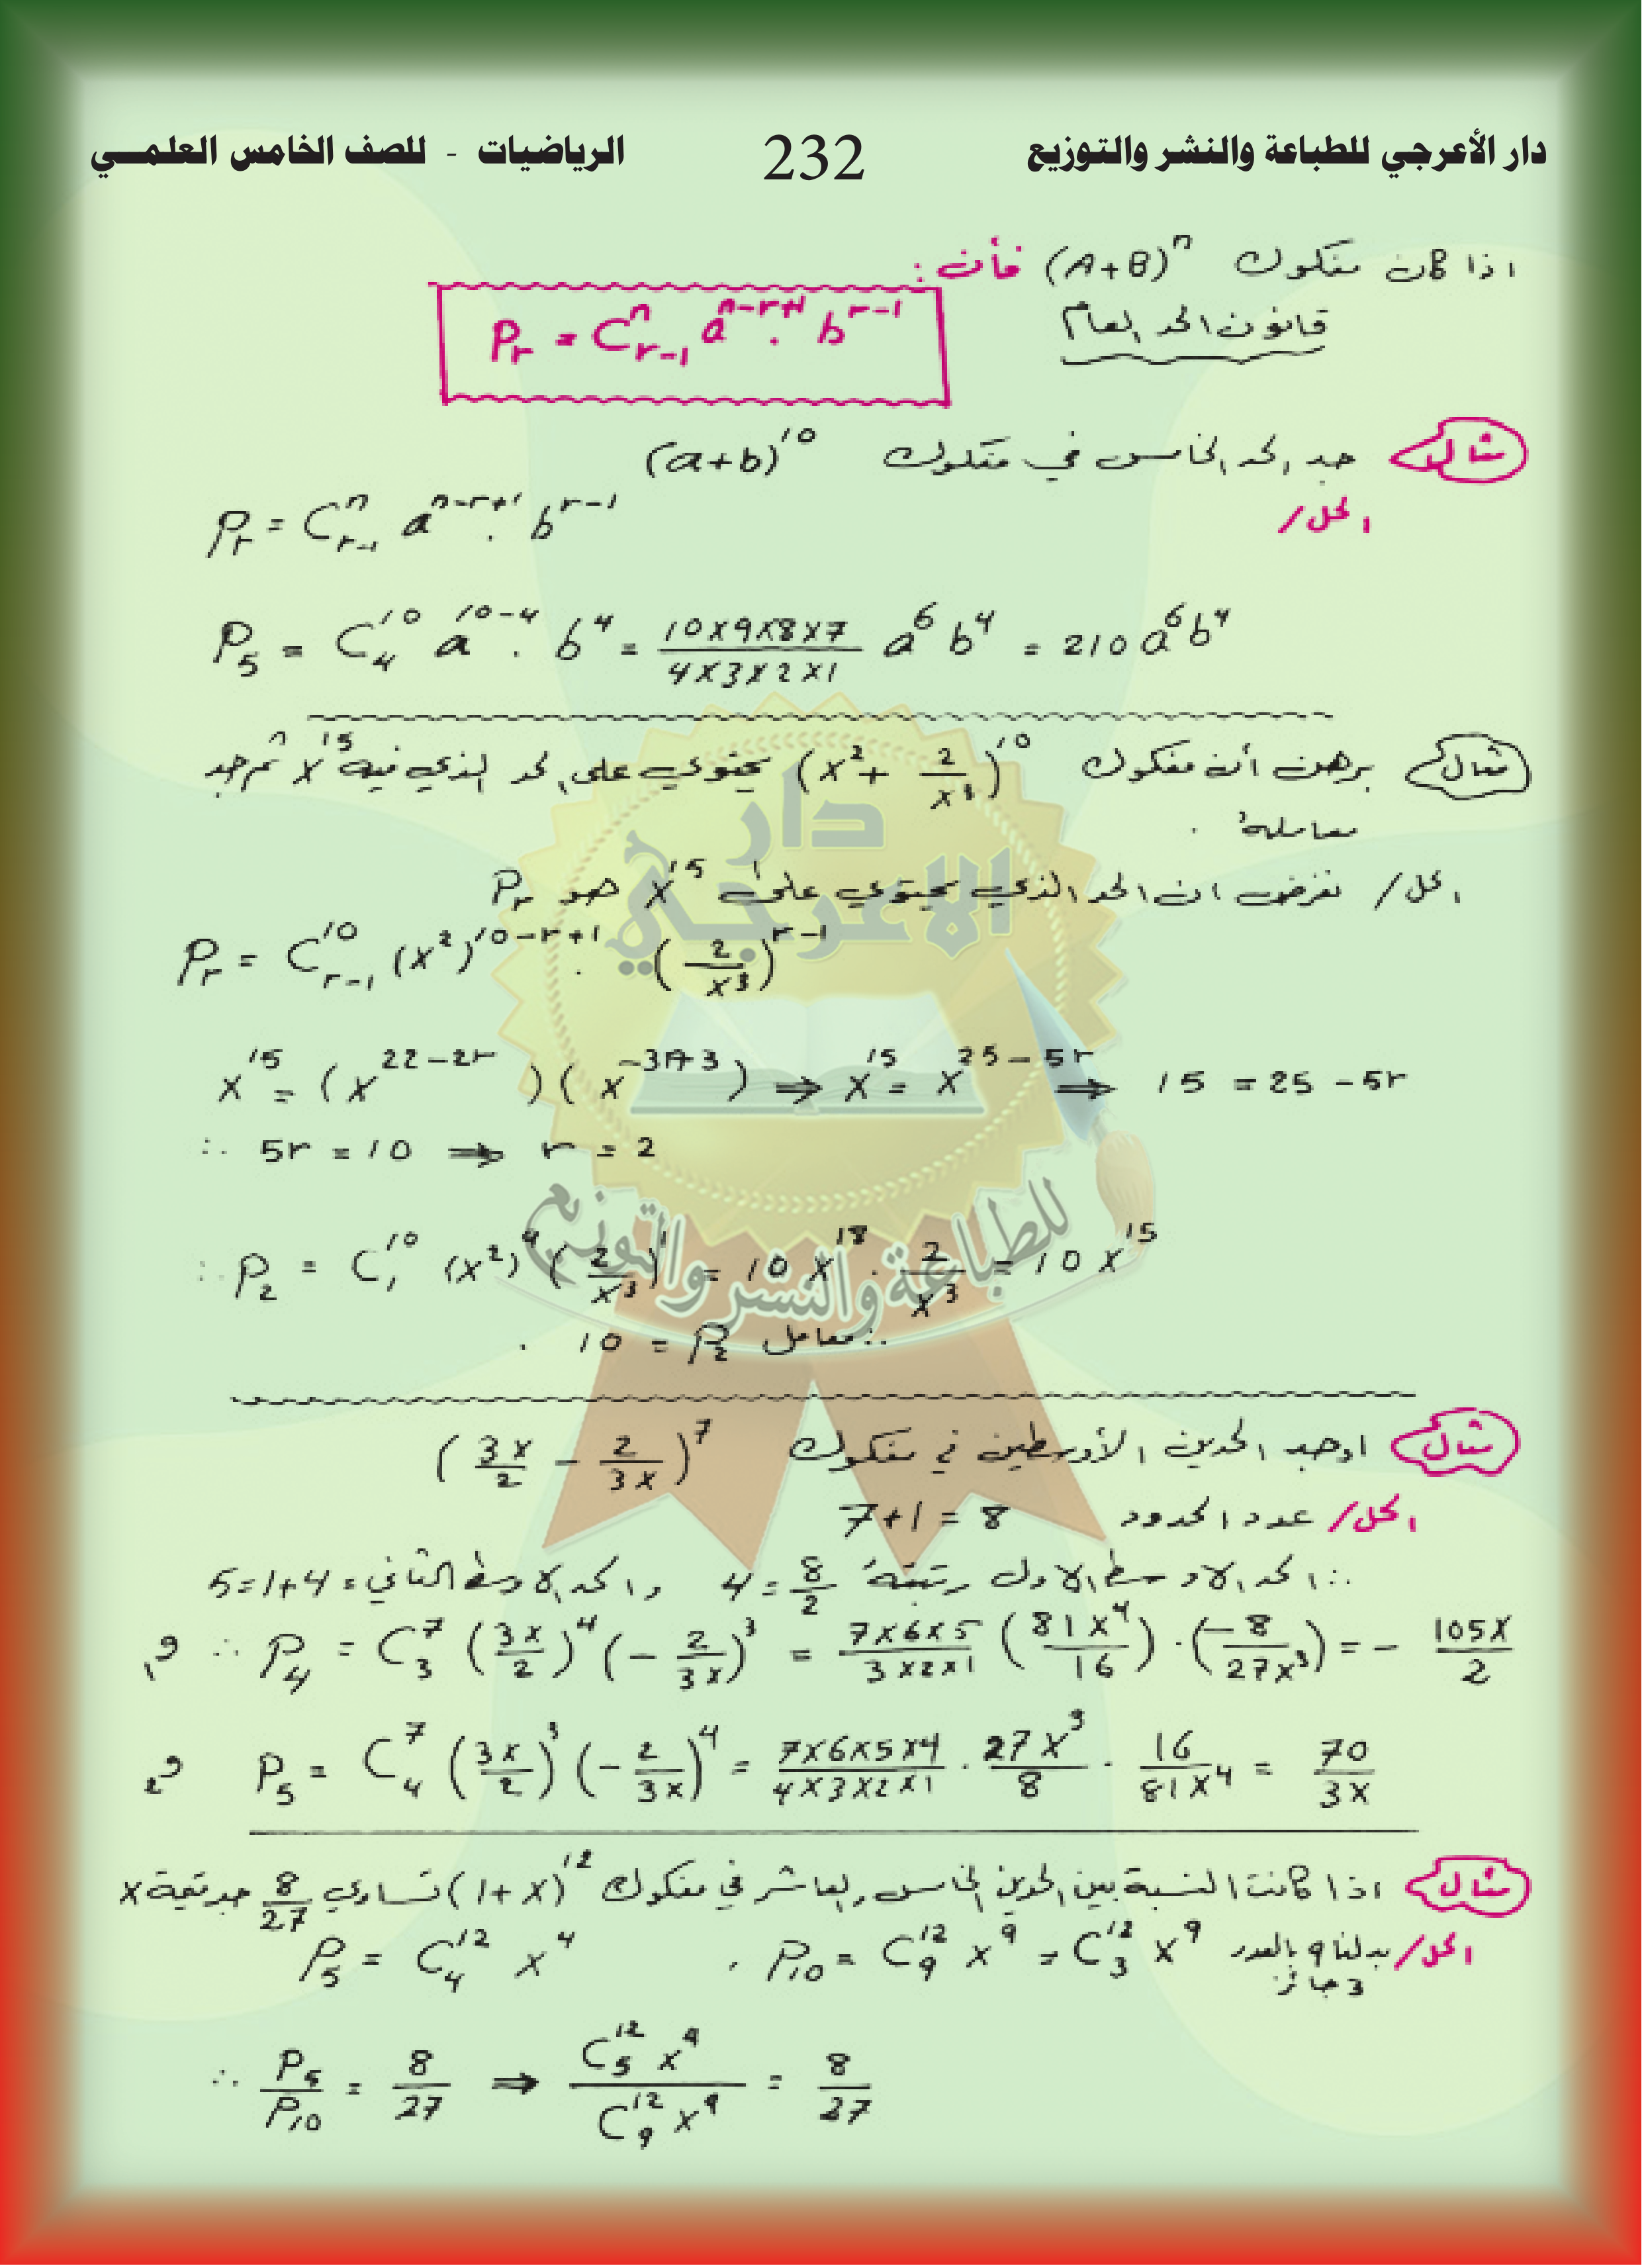 دار الأعرجي للطباعة والنشر والتوزيع 232 الرياضيات - للصف الخامس العلمي
اذا كان مفكوك (A+B)^n فأن :
قانون الحد العام P_r = C^n_{r-1} a^{n-r+1} . b^{r-1}
مثال جد الحد الخامس في مفكوك (a+b)^10
الحل/
P_r = C^n_{r-1} a^{n-r+1} . b^{r-1}
P_5 = C^10_4 a^{10-4} . b^4 = (10×9×8×7)/(4×3×2×1) a^6 b^4 = 210 a^6 b^4
مثال برهن أن مفكوك (x^2 + 2/x^3)^10 يحتوي على الحد الذي فيه x^15 ثم جد
معامله .
الحل/ نفرض ان الحد الذي يحتوي على x^15 هو P_r
P_r = C^10_{r-1} (x^2)^{10-r+1} . (2/x^3)^{r-1}
x^15 = (x^{22-2r})(x^{-3r+3}) ⇒ x^15 = x^{25-5r} ⇒ 15 = 25 - 5r
∴ 5r = 10 ⇒ r = 2
∴ P_2 = C^10_1 (x^2)^9 (2/x^3)^1 = 10 x^18 . 2/x^3 = 10 x^15
∴ معامل P_2 = 10 .
مثال اوجد الحدين الأوسطين في مفكوك (3x/2 - 2/3x)^7
الحل/ عدد الحدود 7+1 = 8
∴ الحد الاوسط الاول رتبته 8/2 = 4 والحد الاوسط الثاني = 4+1=5
∴ P_4 = C^7_3 (3x/2)^4 (-2/3x)^3 = (7×6×5)/(3×2×1) (81x^4/16) . (-8/27x^3) = - 105x/2
P_5 = C^7_4 (3x/2)^3 (-2/3x)^4 = (7×6×5×4)/(4×3×2×1) . 27x^3/8 . 16/81x^4 = 70/3x
مثال اذا كانت النسبة بين الحدين الخامس والعاشر في مفكوك (1+x)^12 تساوي 8/27 جد قيمة x
الحل/ بدلنا 9 بالعدد P_10 = C^12_9 x^9 = C^12_3 x^9 . P_5 = C^12_4 x^4
3 جائز
∴ P_5/P_10 = 8/27 ⇒ (C^12_5 x^4)/(C^12_9 x^9) = 8/27
دار
الاعرجي
للطباعة والنشر والتوزيع